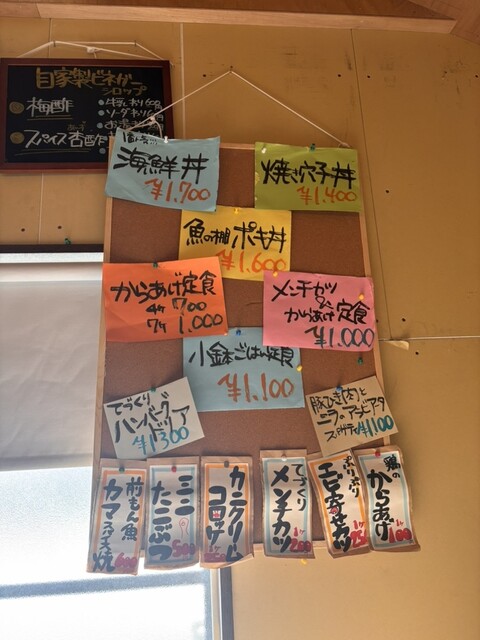 自家製ビネガー
シロップ
梅酢
スパイス杏酢
海鮮丼
¥1.700
焼き穴子丼
¥1.400
魚の棚 ポキ丼
¥1.600
からあげ定食
4ケ 700
7ケ 1.000
メンチカツ
&
からあげ定食
¥1.000
小鉢ごはん定食
¥1.100
てづくり
ハンバーグ
ドリア
¥1300
豚ひき(肉)と
ニラのアラビアータ
スパゲティ ¥1100
前もん魚
カマスパイス焼
600
ミニ
たこぶつ
500
カニクリーム
コロッケ
てづくり
メンチカツ
200
ぷりぷり
エビよせカツ
250
鶏の
からあげ
100